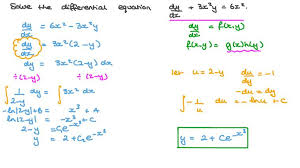 Solve the differential equation dy/dx + 3x²y = 6x².
dy/dx = 6x² - 3x²y
dy/dx = 3x²(2-y)
dy = 3x²(2-y) dx
÷(2-y) ÷(2-y)
∫ 1/(2-y) dy = ∫ 3x² dx
-ln|2-y|+B = x³ + A
ln|2-y| = -x³ + C
2-y = C₁e^-x³
y = 2 + C₂e^-x³
dy/dx = f(x,y)
f(x,y) = g(x)h(y)
let u = 2-y du/dy = -1
-du = dy
∫ -1/u du = -ln u + C
y = 2 + Ce^-x³